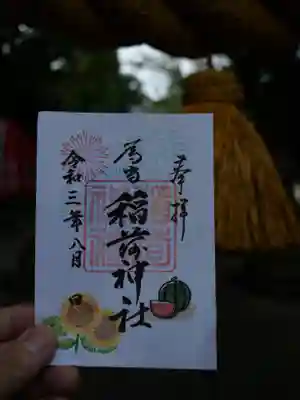 奉拝
稲荷神社
令和三年八月 日